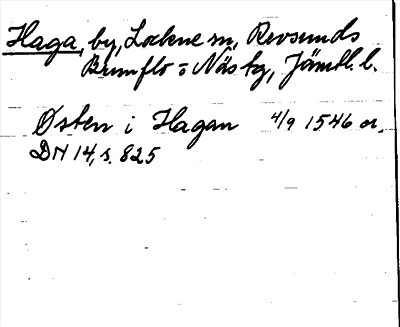 Haga, by, Lockne sn, Revsunds
Brunflo o Näs tg, Jämtl. l.
Østen i Hagan 4/9 1546 or.
DN 14, s. 825